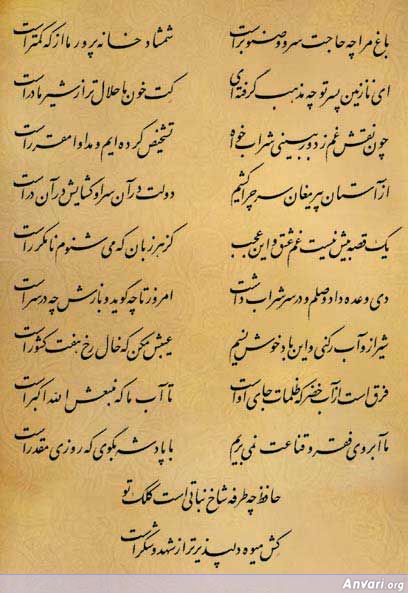 باغ مرا چه حاجت سرو و صنوبر است شمشاد خانه پرور ما از که کمتر است
ای نازنین پسر تو چه مذهب گرفته‌ای کت خون ما حلال تر از شیر مادر است
چون نقش غم ز دور ببینی شراب خواه تشخیص کرده ایم و مداوا مقرر است
از آستان پیر مغان سر چرا کشیم دولت در آن سرا و گشایش در آن در است
یک قصه بیش نیست غم عشق و این عجب کز هر زبان که می شنوم نامکرر است
دی وعده داد وصلم و در سر شراب داشت امروز تا چه گوید و بازش چه در سر است
شیراز و آب رکنی و این باد خوش نسیم عیبش مکن که خال رخ هفت کشور است
فرق است از آب خضر که ظلمات جای او است تا آب ما که منبعش الله اکبر است
ما آبروی فقر و قناعت نمی بریم با پادشه بگوی که روزی مقدر است
حافظ چه طرفه شاخ نباتی است کلک تو
کش میوه دلپذیرتر از شهد و شکر است
Anvari.org